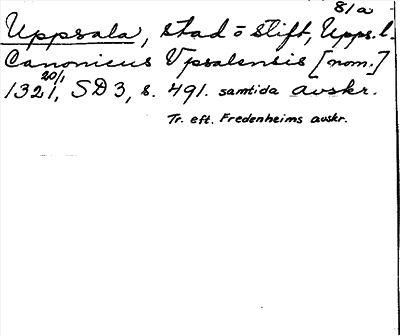 81a
Uppsala, stad o stift, Upps. l.
Canonicus Vpsalensis [nom.]
1321 20/1, SD 3, s. 491. samtida avskr.
Tr. eft. Fredenheims avskr.